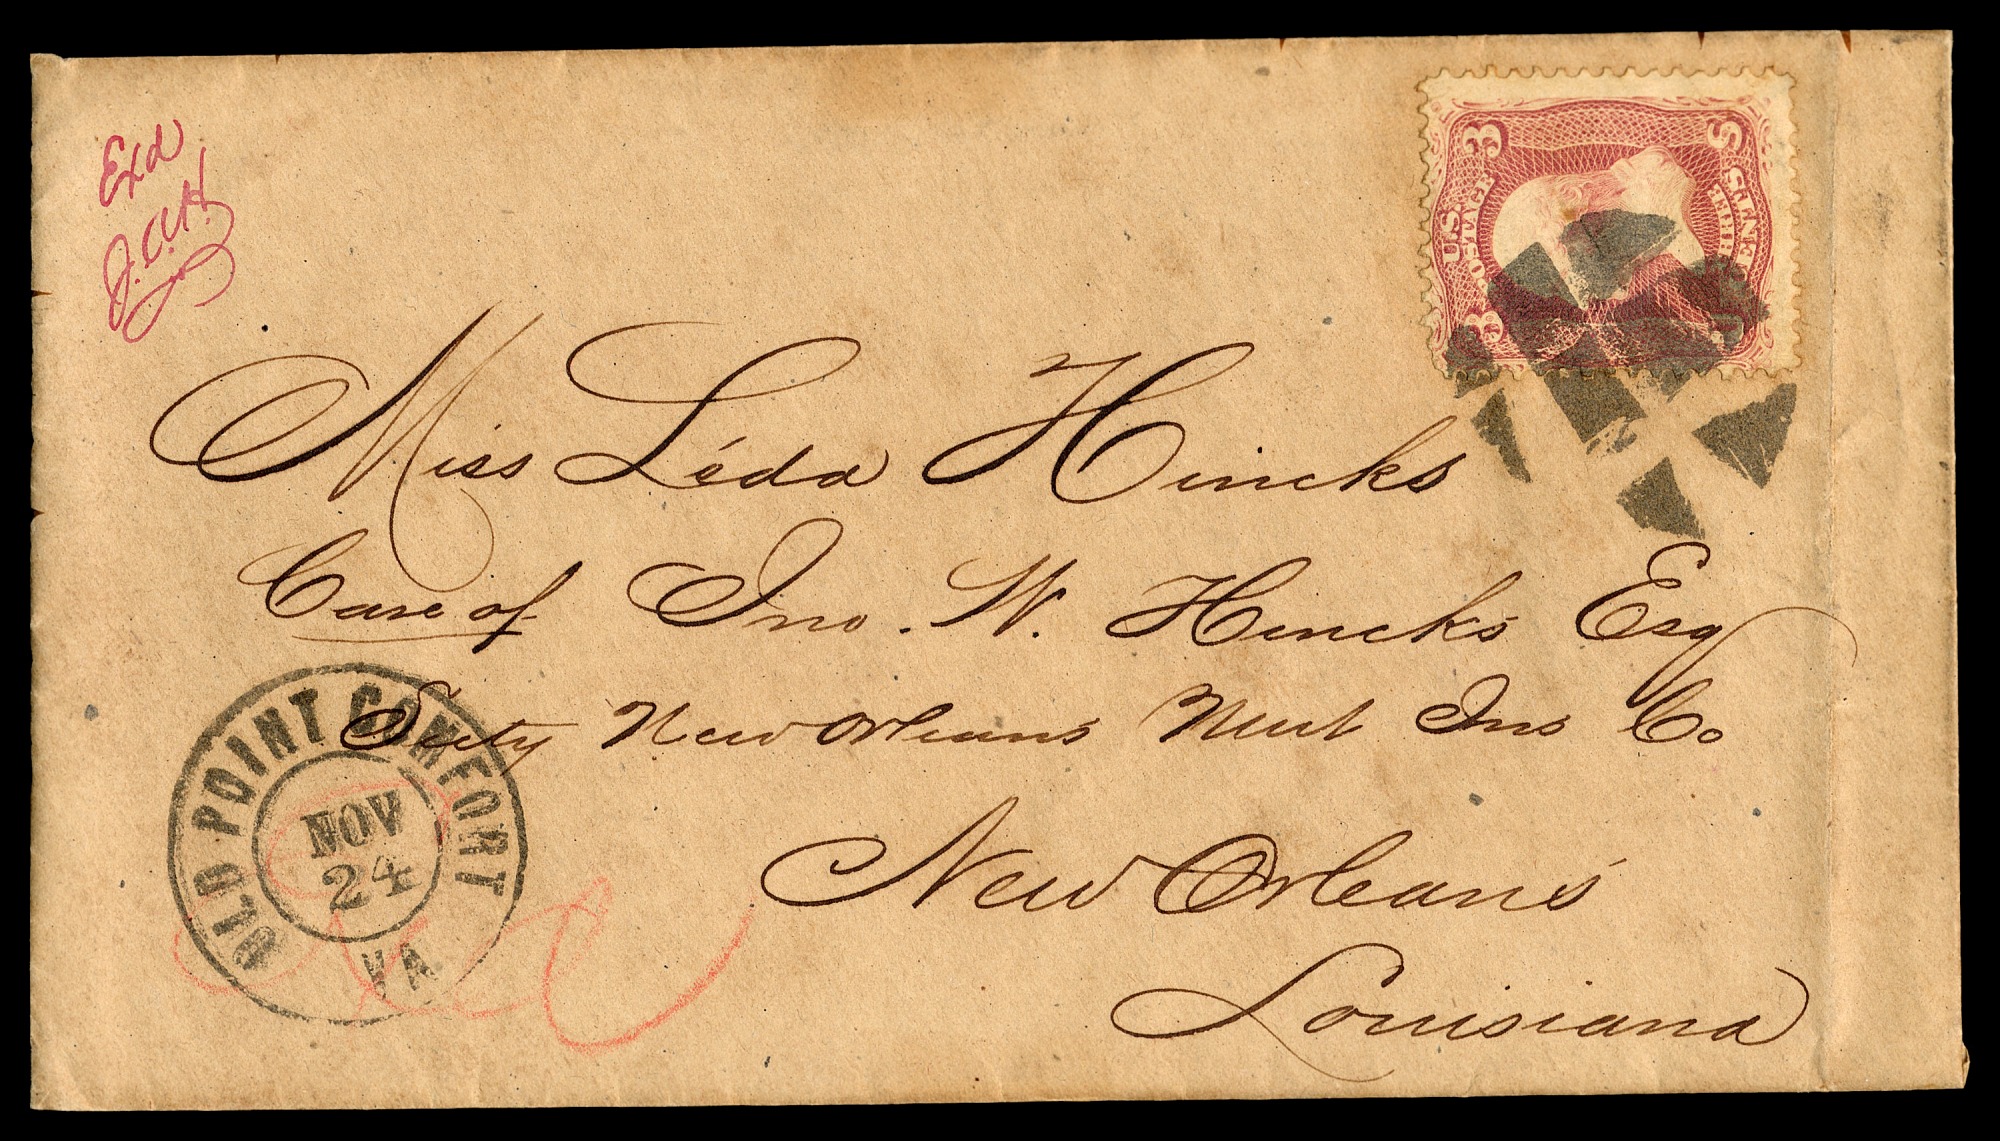 Exd
J.C.H.
3
3
U.S.
POSTAGE
S
CENTS
THREE
Miss Léda Hincks
Care of Jno. W. Hincks Esq
Secty New Orleans Mut Ins Co
New Orleans
Louisiana
OLD POINT COMFORT
NOV
24
VA